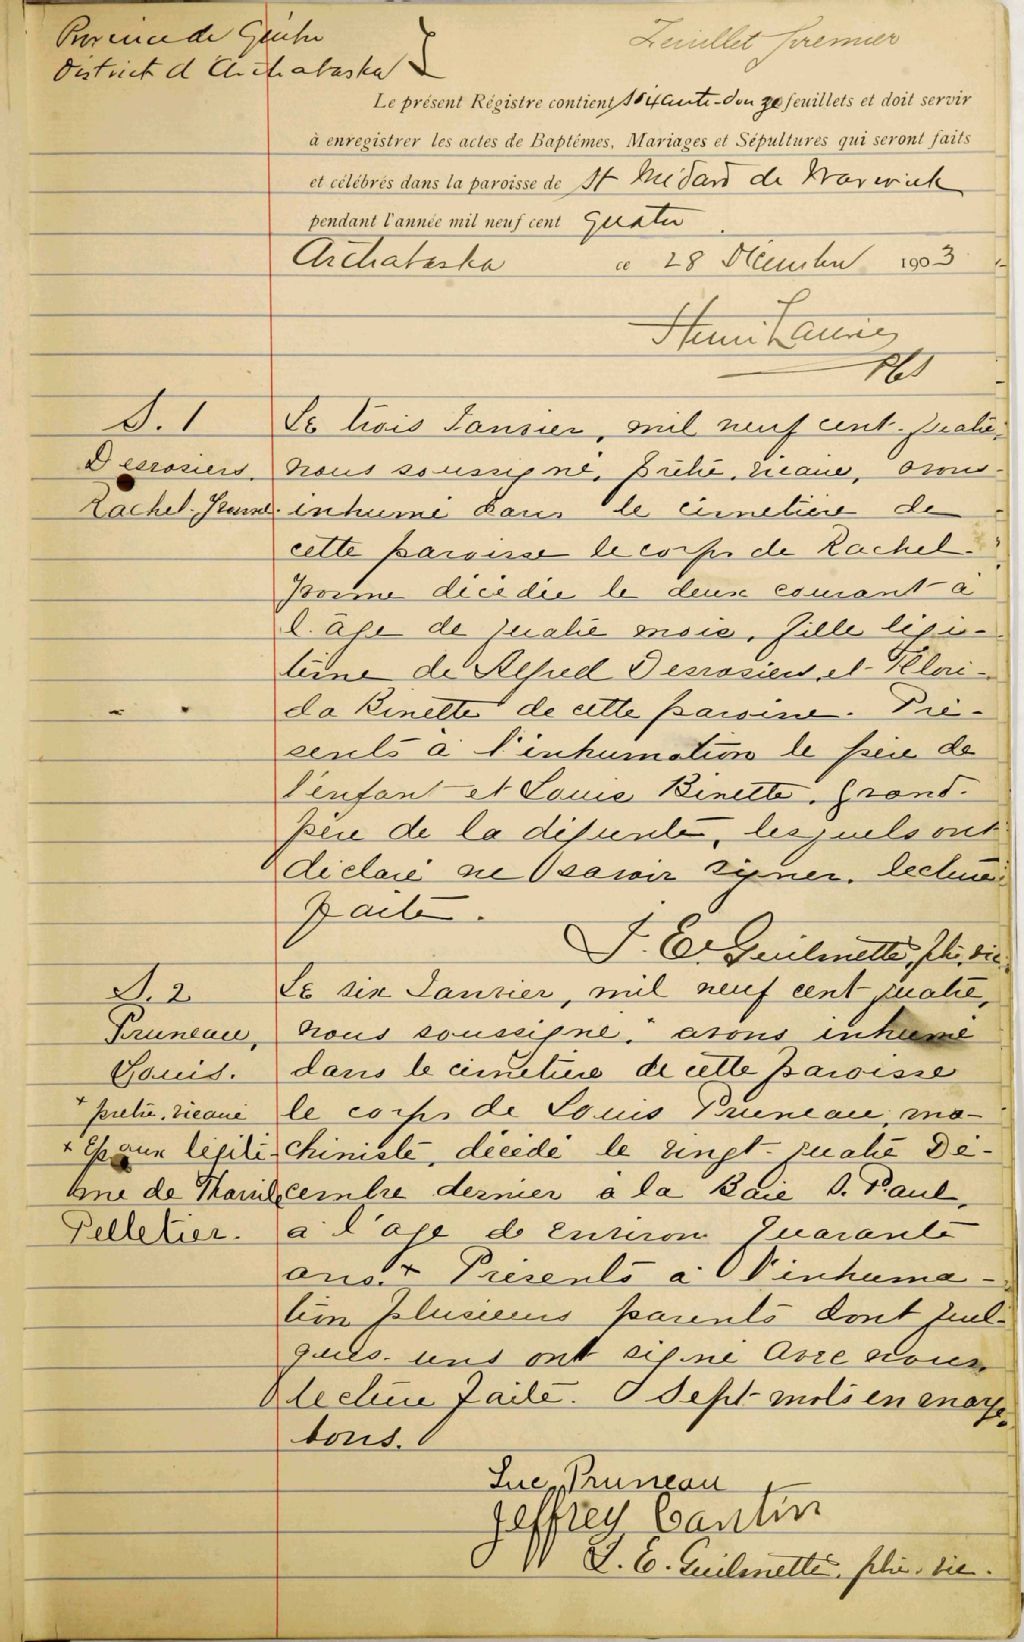 Province de Québec
District d'Arthabaska
Feuillet premier
Le présent Régistre contient soixante-douze feuillets et doit servir
à enregistrer les actes de Baptêmes, Mariages et Sépultures qui seront faits
et célébrés dans la paroisse de St Médard de Warwick
pendant l'année mil neuf cent quatre.
Arthabaska ce 28 Décembre 1903
Henri Laurier
PCS
S. 1
Desrosiers,
Rachel-Jeanne.
Le trois Janvier, mil neuf cent-quatre,
nous soussigné, prêtre, vicaire, avons
inhumé dans le cimetière de
cette paroisse le corps de Rachel-
décédée le deux courant à
l'âge de quatre mois, fille légi-
time de Alfred Desrosiers et Flori-
da Binette de cette paroisse. Pré-
sents à l'inhumation le père de
l'enfant et Louis Binette, grand-
père de la défunte, lesquels ont
déclaré ne savoir signer. lecture
faite.
J. E. Guilmette, ptre. vic.
S. 2
Pruneau,
Louis.
+ prêtre, vicaire
+ Epoux légiti-
me de
Pelletier.
Le six Janvier, mil neuf cent quatre,
nous soussigné + avons inhumé
dans le cimetière de cette paroisse
le corps de Louis Pruneau, ma-
chiniste, décédé le vingt-quatre Dé-
cembre dernier à la Baie S. Paul,
à l'age de environ quarante
ans. + Présents à l'inhuma-
tion plusieurs parents dont quel-
ques-uns ont signé avec nous.
lecture faite. Sept mots en marge
bons.
Luc Pruneau
Jeffrey Cantin
J. E. Guilmette, ptre. vic.